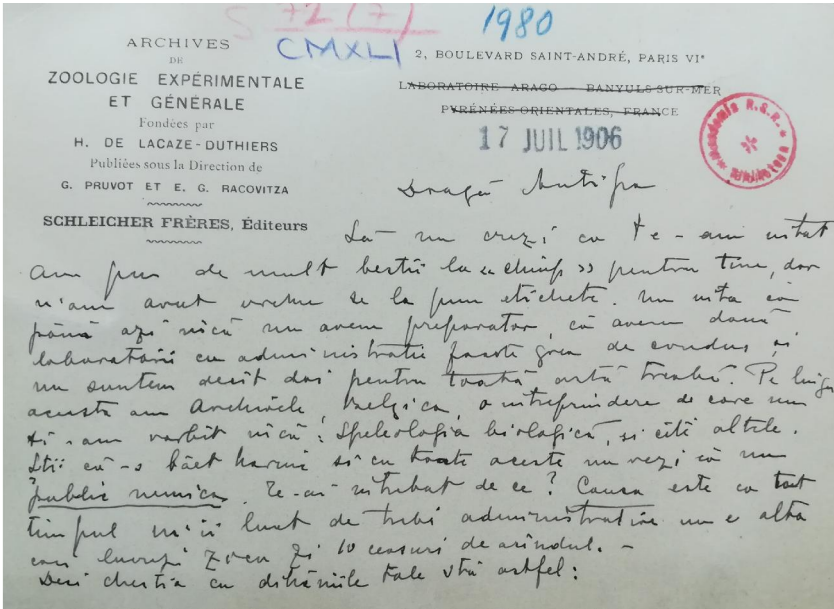 S 72 (7)
CMXLI
1980
ARCHIVES
DE
ZOOLOGIE EXPÉRIMENTALE
ET GÉNÉRALE
Fondées par
H. DE LACAZE-DUTHIERS
Publiées sous la Direction de
G. PRUVOT ET E. G. RACOVITZA
SCHLEICHER FRÈRES, Éditeurs
2, BOULEVARD SAINT-ANDRÉ, PARIS VIe
LABORATOIRE ARAGO — BANYULS-SUR-MER
PYRÉNÉES-ORIENTALES, FRANCE
17 JUIL 1906
Academia R.S.R.
Dragă Antipa
Să nu crezi că te-am uitat
Am pus de mult bestii la « chimp » pentru tine, dar
n'am avut vreme se la pun etichete. Nu uita că
până azi nică nu avem preparator, că avem două
laboratorii cu administratie foarte grea de condus și
nu suntem decît doi pentru toată astă treabă. Pe lîngă
acesta am Archivele, Belgica, o intreprindere de care nu
ți-am vorbit nică: Speleologia biologică, si cîte altele.
Stii că-s băet harnic si cu toate aceste nu vezi că nu
public nemica. Te-ai intrebat de ce? Causa este ca tot
timpul mi-i luat de trebi administrative nu e alta
lucrezi zi cu zi 10 ceasuri de arîndul. —
Deci chestia cu dihăniile tale stă astfel: